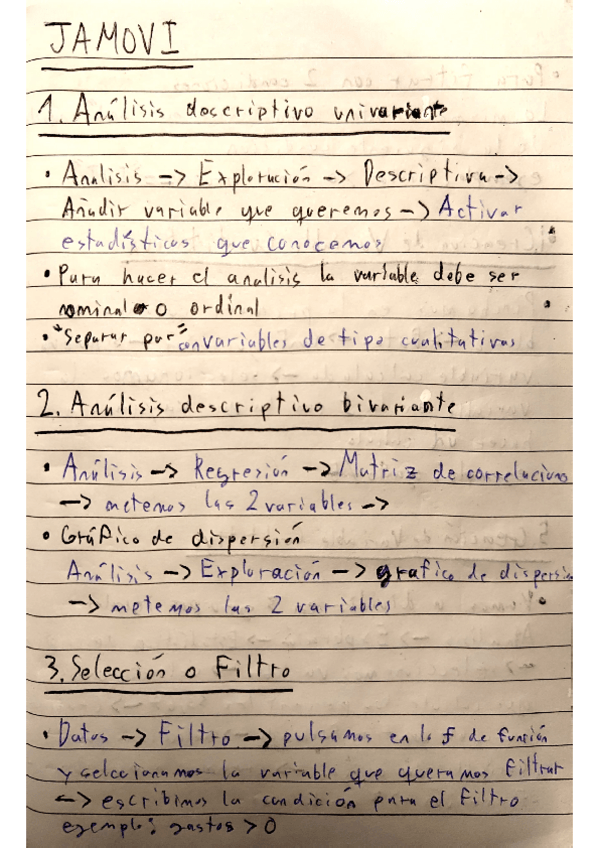 JAMOVI
1. Análisis descriptivo univariante
• Analisis -> Exploración -> Descriptiva ->
Añadir variable que queremos -> Activar
estadísticos que conocemos
• Para hacer el analisis la variable debe ser
nominal o ordinal
• "Separar por" con variables de tipo cualitativas
2. Análisis descriptivo bivariante
• Análisis -> Regresión -> Matriz de correlaciones
-> metemos las 2 variables ->
• Gráfico de dispersión
Análisis -> Exploración -> grafico de dispersión
-> metemos las 2 variables
3. Selección o Filtro
• Datos -> Filtro -> pulsamos en la f de función
y seleccionamos la variable que queramos filtrar
-> escribimos la condición para el filtro
ejemplo: gastos > 0